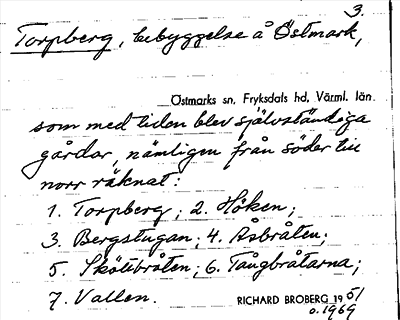 3.
Torpberg, bebyggelse å Östmark,
Östmarks sn, Fryksdals hd, Värml. län
som med tiden blev självständiga
gårdar, nämligen från söder till
norr räknat:
1. Torpberg; 2. Höken;
3. Bergstugan; 4. Åsbråten;
5. Skölbråten; 6. Tångbråtarna;
7. Vallen.
RICHARD BROBERG 1951
o. 1969